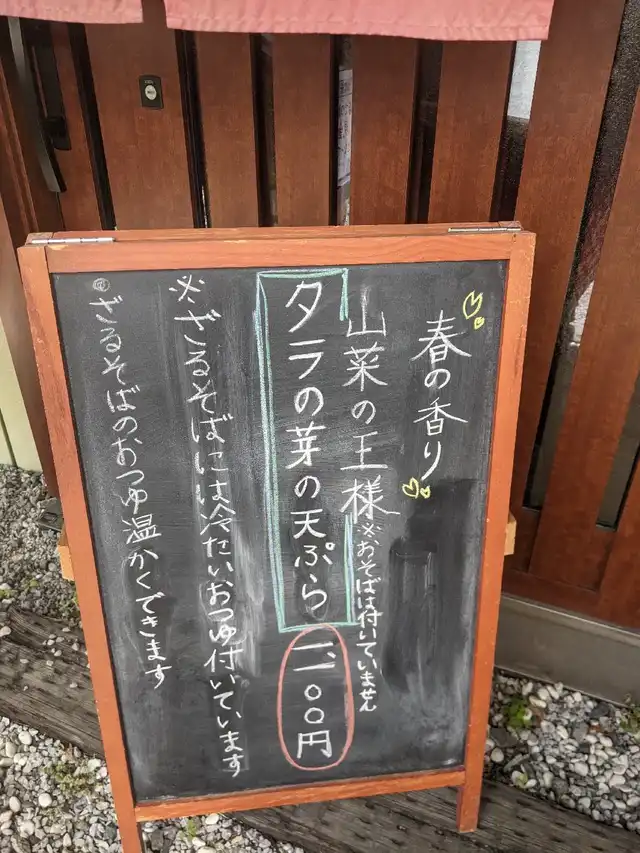 春の香り
山菜の王様
※おそばは付いていません
タラの芽の天ぷら 一、一〇〇円
※ざるそばには冷たいおつゆ付いています
◎ざるそばのおつゆ温かくできます